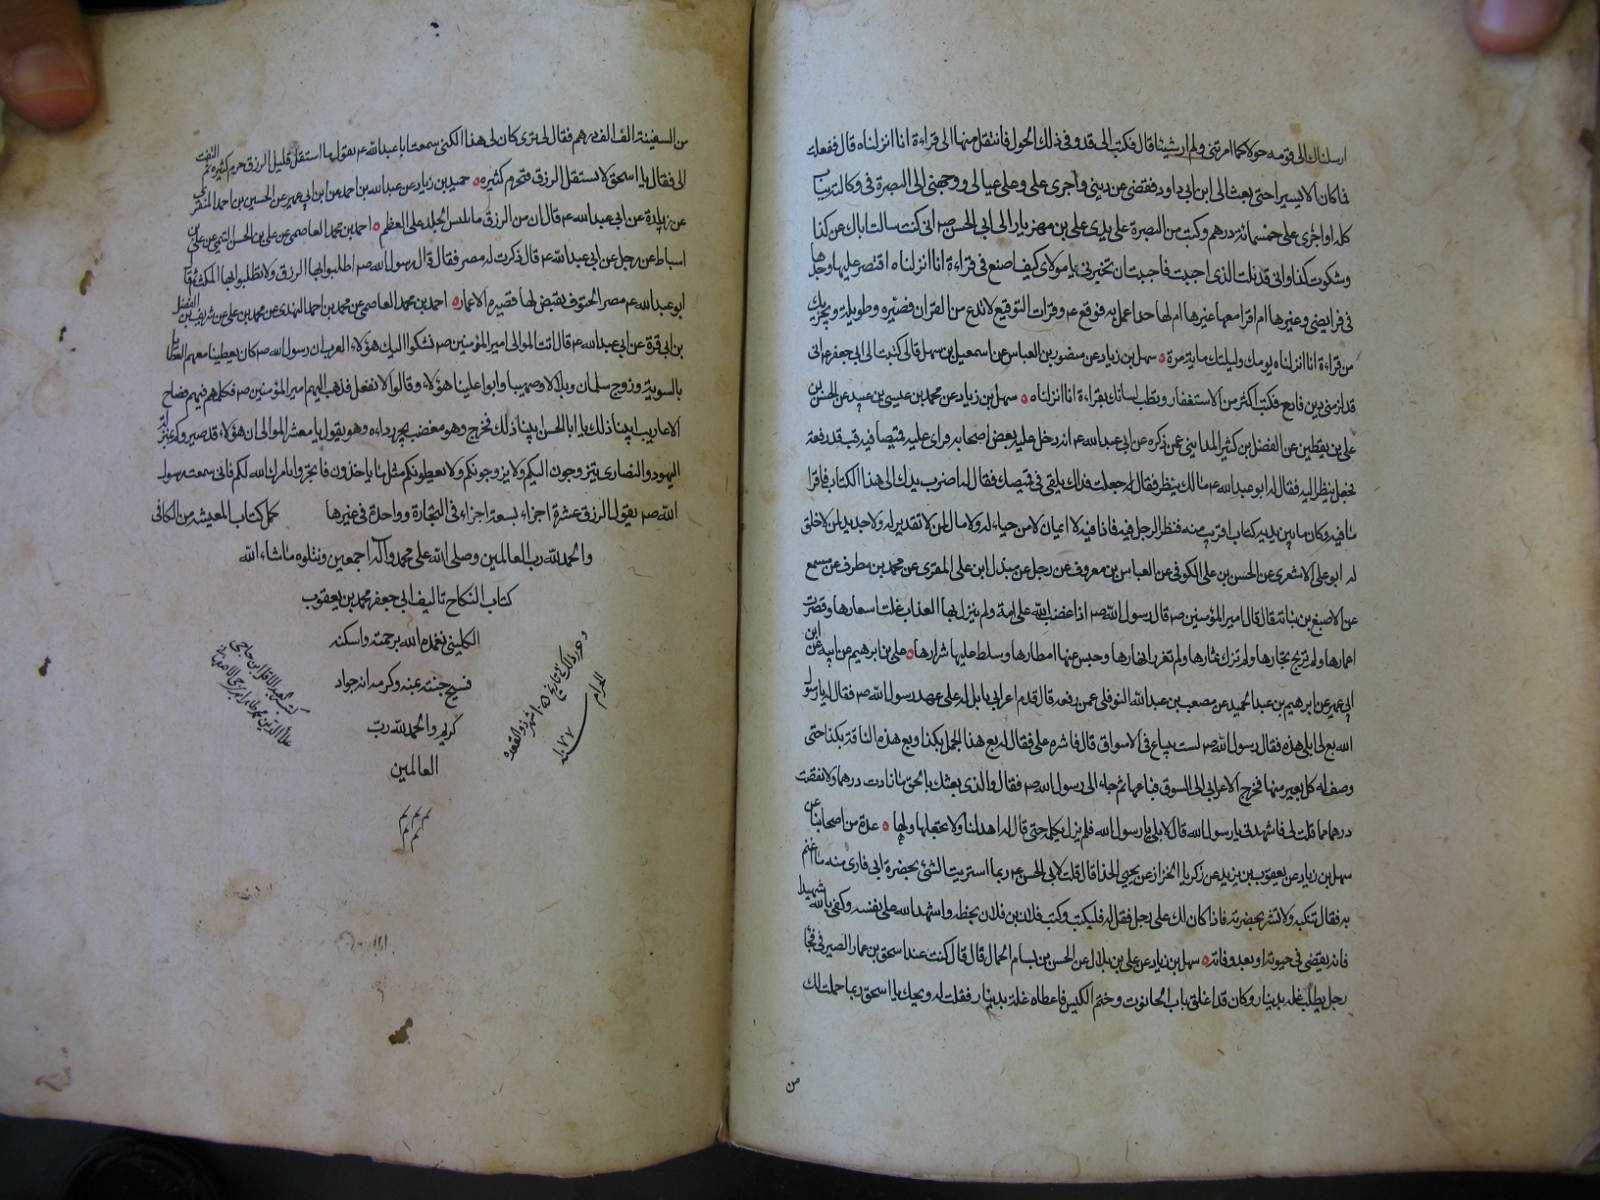 ارسلناك الى قومه حولا كما امرتنى ولم ار شيئا قال فكتب الى قد وفى ذلك الحول فانتقل منها الى قراءة انا انزلناه قال ففعلت
فما كان الا يسيرا حتى بعث الى ابن ابى داود فقضى عنى دينى واجرى على وعلى عيالى ووجهنى الى البصرة فى وكالته بباب
كلاء واجرى على خمسمائة درهم وكتبت من البصرة على يدى على بن مهزيار الى ابى الحسن ص انى كنت سالت اباك عن كذا
وشكوت كذا وانى قد نلت الذى احببت فاحببت ان تخبرنى يا مولاى كيف اصنع فى قراءة انا انزلناه اقتصر عليها وحدها
فى فرايضى وغيرها ام اقرا معها غيرها ام لها حد اعمل به فوقع ع وقرات التوقيع لا تدع من القران قصيره وطويله ويجزيك
من قراءة انا انزلناه يومك وليلتك ماية مرة ه سهل بن زياد عن منصور بن العباس عن اسمعيل بن سهل قال كتبت الى ابى جعفر ع انى
قد لزمنى دين فادح فكتب اكثر من الاستغفار ورطب لسانك بقراءة انا انزلناه ه سهل بن زياد عن محمد بن عيسى بن عبيد عن الحسن بن
على بن يقطين عن الفضل بن كثير المداينى عمن ذكره عن ابى عبدالله ع انه دخل عليه بعض اصحابه فراى عليه قميصا فيه قب قد رقعه
فجعل ينظر اليه فقال له ابو عبدالله ع ما لك ينظر فقال له جعلت فداك يلقى فى قميصك فقال له اضرب يدك الى هذا الكتاب فاقرا
ما فيه وكان ما بين يديه كتاب او قريب منه فنظر الرجل فيه فاذا فيه لا ايمان لا من حياء له ولا مال لمن لا تقدير له ولا جديد لمن لا خلق
له ابو على الاشعرى عن الحسن بن على الكوفى عن العباس بن معروف عن رجل عن مندل ابن على المقرى عن محمد بن مطرف عن مسمع
عن الاصبغ بن نباتة قال قال امير المؤمنين ص قال رسول الله ص اذا غضب الله على امة ولم ينزل بها العذاب غلت اسعارها وقصرت
اعمارها ولم تربح تجارها ولم تزك ثمارها ولم تغزر انهارها وحبس عنها امطارها وسلط عليها شرارها ه على بن ابرهيم عن ابيه عن ابن
ابى عمير عن ابرهيم بن عبد الحميد عن مصعب بن عبدالله النوفلى عمن رفعه قال قدم اعرابى بابل له على عهد رسول الله ص فقال له يا رسول
الله بع لى ابلى هذه فقال رسول الله ص لست ببياع فى الاسواق قال فاشر على فقال له بع هذا الجمل بكذا وبع هذه الناقة بكذا حتى
وصف له كل بعير منها فخرج الاعرابى الى السوق فباعها ثم جاء الى رسول الله ص فقال والذى بعثك بالحق ما زادت درهما ولا نقصت
درهما مما قلت لى فاستهدنى يا رسول الله قال لا بلى يا رسول الله فلم يزل يكلمه حتى قال له اهد لنا ولا تجعلها ولها ه عدة من اصحابنا عن
سهل بن زياد عن يعقوب بن يزيد عن زكريا الخزاز عن يحيى الحذا قال قلت لابى الحسن ع ربما اشتريت الشئ بحضرة ابى فارى منه ما اغتم
به فقال تنكبه ولا تشتر بحضرته فاذا كان لك على رجل فقل له فليكتب وكتب فلان بن فلان بخطه واشهد الله على نفسه وكفى بالله شهيدا
فانه يقضى فى حيوته او بعد وفاته ه سهل بن زياد عن على بن بلال عن الحسن بن بسام الجمال قال كنت عند اسحق بن عمار الصيرفى فجا
رجل يطلب غلة بدينار وكان قد اغلق باب الحانوت وختم الكيس فاعطاه غلة بدينار فقلت له ويحك يا اسحق ربما حملت لك
من
من السفينة الف الف درهم فقال لى ترى كان لى هذا لكنى سمعت ابا عبدالله ع يقول ما استقل قليل الرزق حرم كثيره ثم التفت
الى فقال يا اسحق لا تستقل الرزق فتحرم كثيره ه حميد بن زياد عن عبدالله بن احمد عن ابن ابى عمير عن الحسين بن احمد المنقرى
عن زيادة عن ابى عبدالله ع قال ان من الرزق ما يلبس الجلد على العظم ه احمد بن محمد العاصمى عن على بن الحسن التيمى عن على بن
اسباط عن رجل عن ابى عبدالله ع قال ذكرت له مصر فقال قال رسول الله ص اطلبوا بها الرزق ولا تطلبوا بها المكث ثم قال
ابو عبدالله ع مصر الحتوف يقيض لها قصيرة الاعمار ه احمد بن محمد العاصمى عن محمد بن احمد النهدى عن محمد بن على عن شريف بن الفضل
بن ابى قرة عن ابى عبدالله ع قال اتت الموالى امير المؤمنين ص فشكوا اليك هؤلاء العرب ان رسول الله ص كان يعطينا معهم العطايا
بالسوية وزوج سلمان وبلالا وصهيبا وابوا علينا هؤلاء وقالوا لا نفعل فذهب اليهم امير المؤمنين ص فكلمهم فيهم فصاح
الاعاريب ابينا ذلك يا ابا الحسن ابينا ذلك فخرج وهو مغضب يجر رداءه وهو يقول يا معشر الموالى ان هؤلاء قد صيروكم بمنزلة
اليهود والنصارى يتزوجون اليكم ولا يزوجونكم ولا يعطونكم مثل ما ياخذون فاتجروا بارك الله لكم فانى سمعت رسول
الله ص يقول الرزق عشرة اجزاء تسعة اجزاء فى التجارة وواحدة فى غيرها كمل كتاب المعيشه من الكافى
والحمد لله رب العالمين وصلى الله على محمد وآله اجمعين ونتلوه ما شاء الله
كتاب النكاح تاليف ابى جعفر محمد بن يعقوب
الكلينى تغمده الله برحمته واسكنه
فسيح جنته عنه وكرمه انه جواد
كريم والحمد لله رب
العالمين
م م م
م م
وحرر ذلك فى تاريخ ١٥ شهر ذو القعده
الحرام
سنه ١٠٧٧
كتبه العبد الاقل ابن حاجى